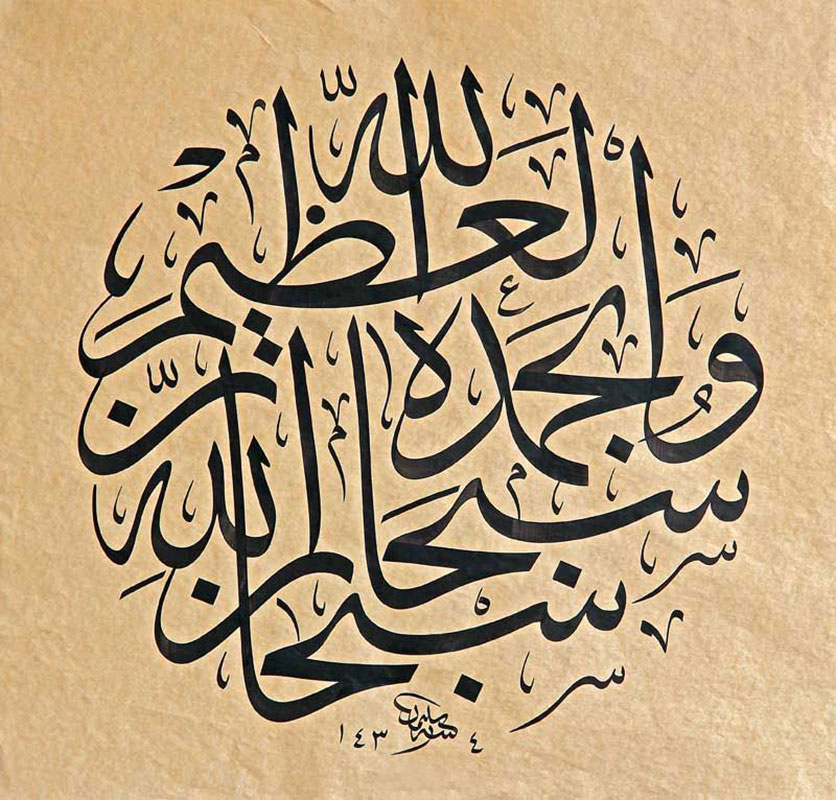 سبحان الله
وبحمده
سبحان
الله العظيم
١٤٣٤